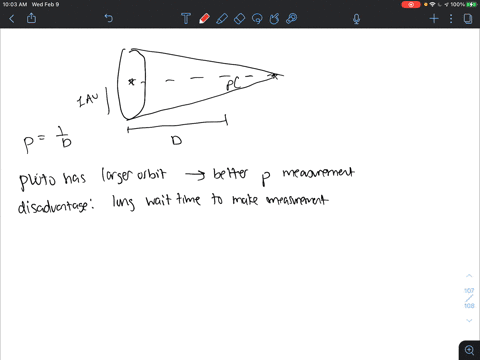 10:03 AM Wed Feb 9
100%
1 AU
PC
D
p = 1/D
pluto has larger orbit → better p measurement
disadvantage: long wait time to make measurement
107
/
108